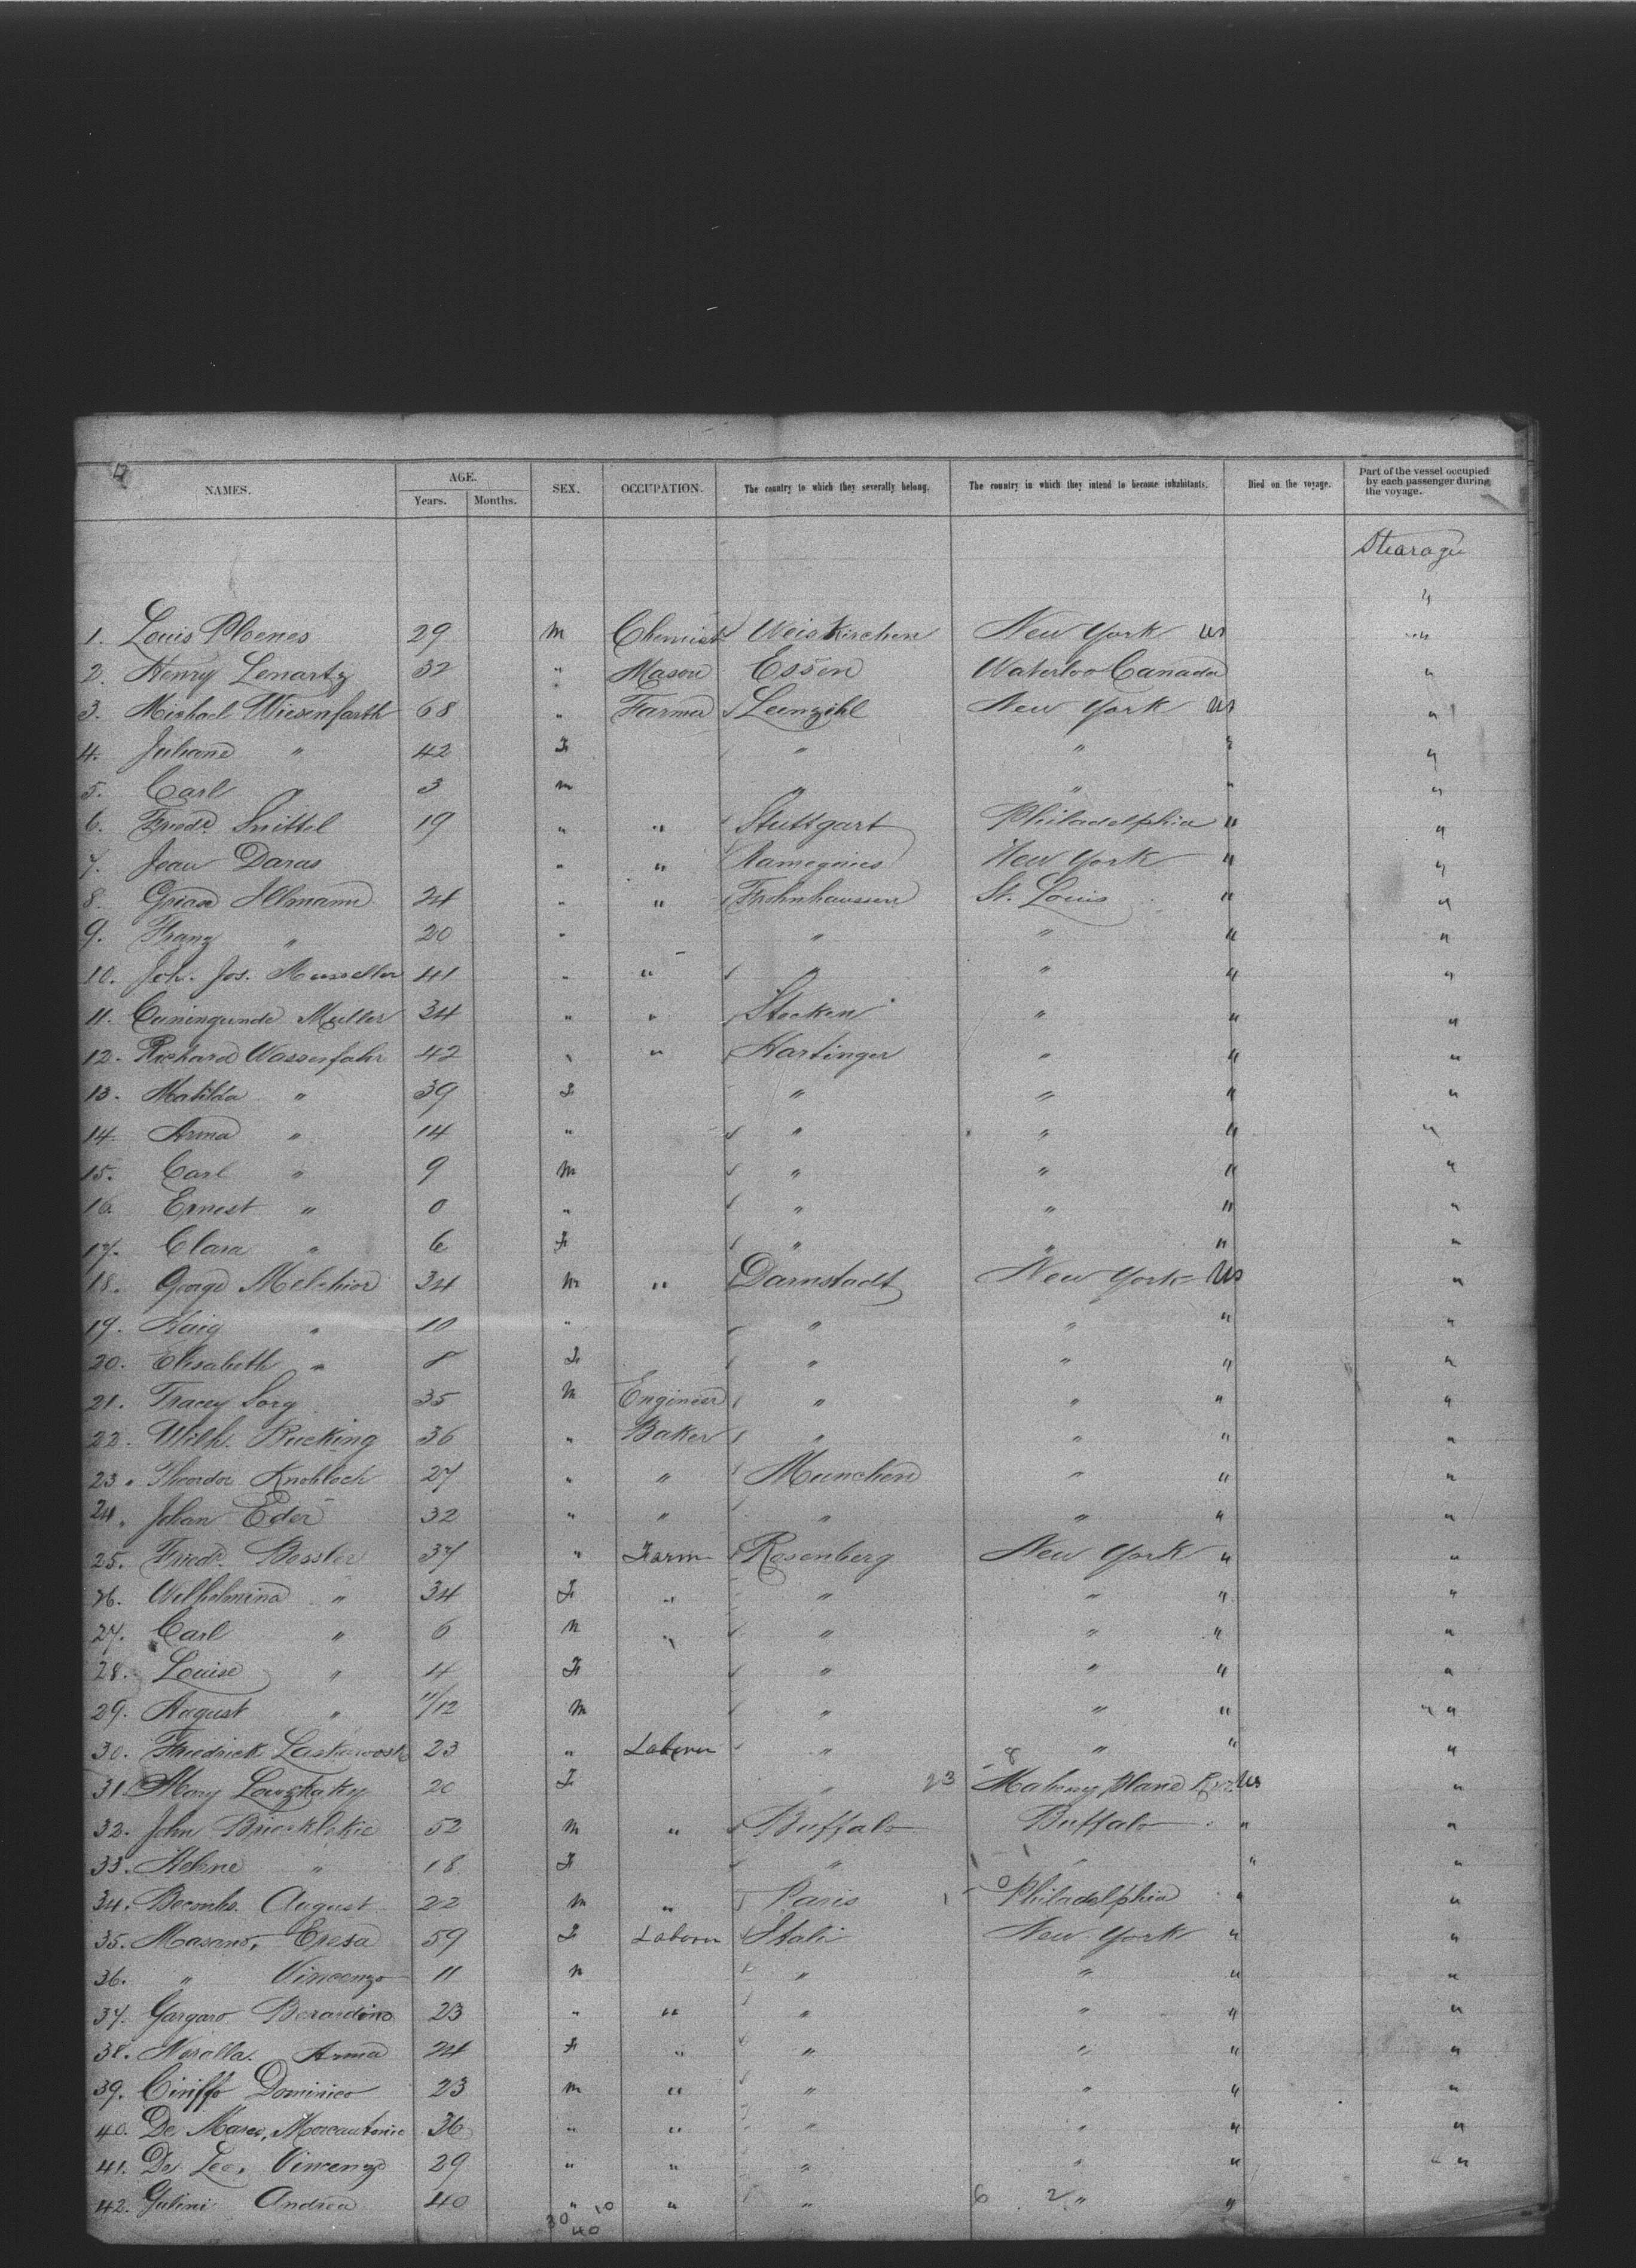 4
NAMES. AGE. SEX. OCCUPATION. The country to which they severally belong. The country in which they intend to become inhabitants. Died on the voyage. Part of the vessel occupied by each passenger during the voyage.
Years. Months.
Stearage
"
1. Louis Ploenes 29 m Chemist Weiskirchen New York us "
2. Henry Lenartz 32 " Mason Essen Waterloo Canada "
3. Michael Wiesenfarth 68 " Farmer Leinzihl New York us "
4. Juliane " 42 F " " " "
5. Carl " 3 m " " " "
6. Friedr. Snittel 19 " " Stuttgart Philadelphia " "
7. Jean Daras " " Ramegnies New York " "
8. Illmann 24 " " Frohnhausen St. Louis " "
9. Franz " 20 " " " " "
10. Joh. Jos. 41 " " " " " "
11. Cuningunde Muller 34 " " Stocken " " "
12. Richard Wassenfahr 42 " " Hartinger " " "
13. Matilda " 39 F " " " "
14. Anna " 14 " " " " "
15. Carl " 9 m " " " "
16. Ernest " 0 " " " " "
17. Clara " 6 F " " " "
18. George Melchior 34 m " Darmstadt New York us "
19. " 10 " " " " "
20. Elisabeth " 8 F " " " "
21. Tracey Sorg 35 m Engineer " " " "
22. Wilh. Bucking 36 " Baker " " " "
23. Theordor Knobloch 27 " " Munchen " " "
24. Johan Eder 32 " " " " " "
25. Friedr. Bessler 37 " Farm Rosenberg New York " "
26. Wilhelmina " 34 F " " " " "
27. Carl " 6 m " " " " "
28. Louise " 4 F " " " "
29. August " 11/12 m " " " " "
30. Friedrick 23 " Laborer " " " "
31. Mary 20 F " 23 Mahony Plane us "
32. John 52 m " Buffalo Buffalo " "
33. Helene " 18 F " " " "
34. August 22 m " Paris Philadelphia " "
35. Masano, Eresa 59 F Laborer Itali New York " "
36. " Vincenzo 11 m " " " "
37. Gargaro Berardino 23 " " " " " "
38. Anna 24 F " " " " "
39. Ciriffo Dominico 23 m " " " " "
40. De Marco, Marcantonio 36 " " " " " "
41. De Leo, Vincenzo 29 " " " " " "
42. Andrea 40 " " " 6 2 " " "
30 10
40